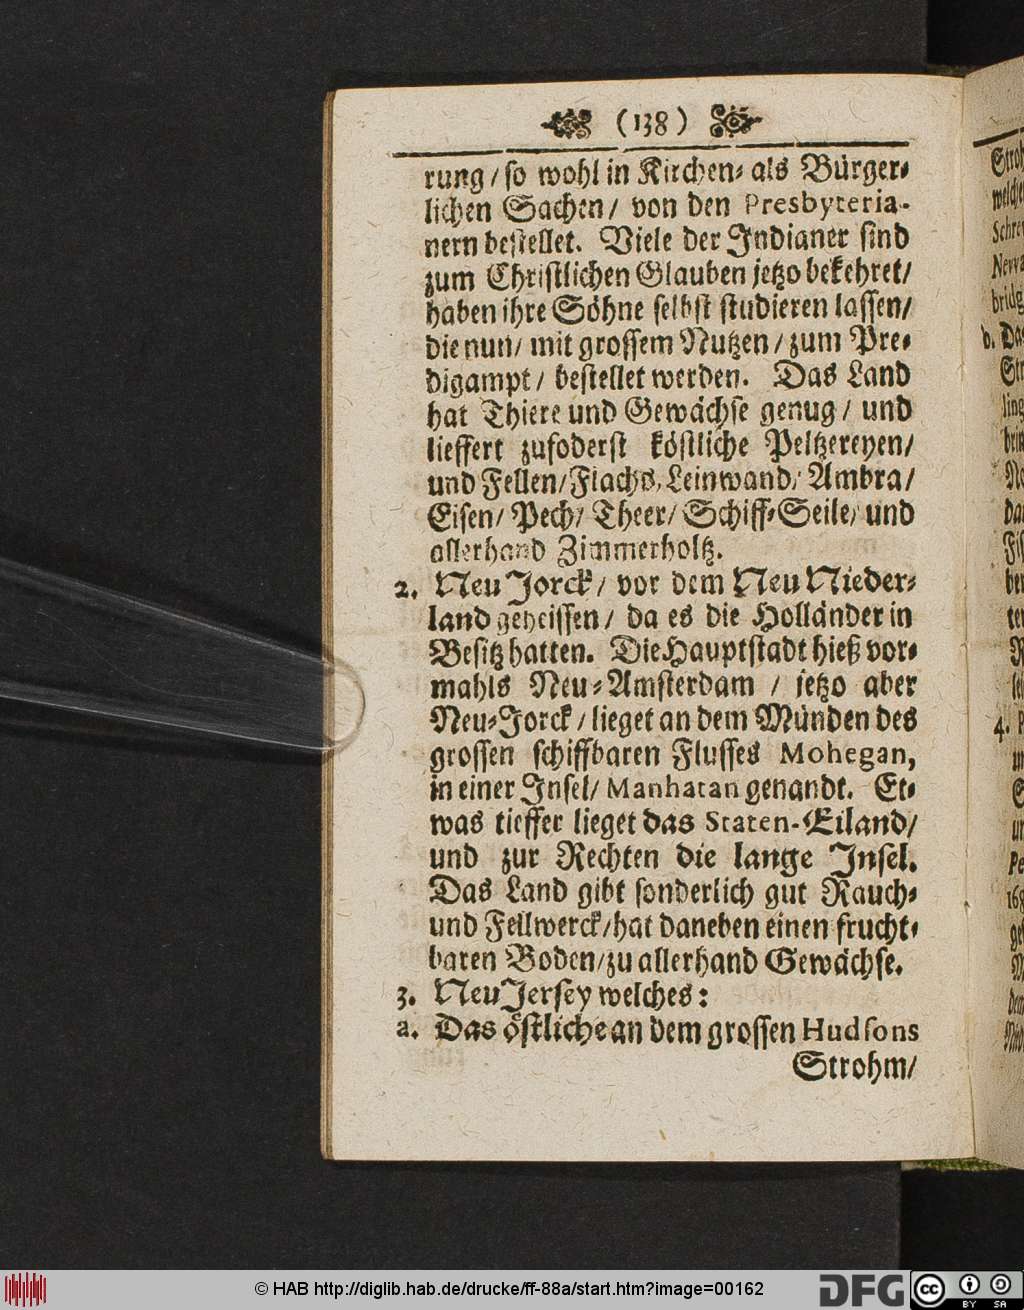 (138)
rung / so wohl in Kirchen- als Bürger-
lichen Sachen / von den Presbyteria-
nern bestellet. Viele der Indianer sind
zum Christlichen Glauben jetzo bekehret /
haben ihre Söhne selbst studieren lassen /
die nun / mit grossem Nutzen / zum Pre-
digampt / bestellet werden. Das Land
hat Thiere und Gewächse genug / und
lieffert zufoderst köstliche Peltzereyen /
und Fellen / Flachs, Leinwand / Ambra /
Eisen / Pech / Theer / Schiff-Seile / und
allerhand Zimmerholtz.
2. Neu Jorck / vor dem Neu Nieder-
land geheissen / da es die Holländer in
Besitz hatten. Die Hauptstadt hieß vor-
mahls Neu-Amsterdam / jetzo aber
Neu-Jorck / lieget an dem Münden des
grossen schiffbaren Flusses Mohegan,
in einer Insel / Manhatan genandt. Et-
was tieffer lieget das Staten-Eiland /
und zur Rechten die lange Insel.
Das Land gibt sonderlich gut Rauch-
und Fellwerck / hat daneben einen frucht-
baren Boden / zu allerhand Gewächse.
3. Neu Jersey welches:
a. Das östliche an dem grossen Hudsons
Strohm /
Stroh
welche
Schre
b.
4.
© HAB http://diglib.hab.de/drucke/ff-88a/start.htm?image=00162
DFG
cc
BY SA